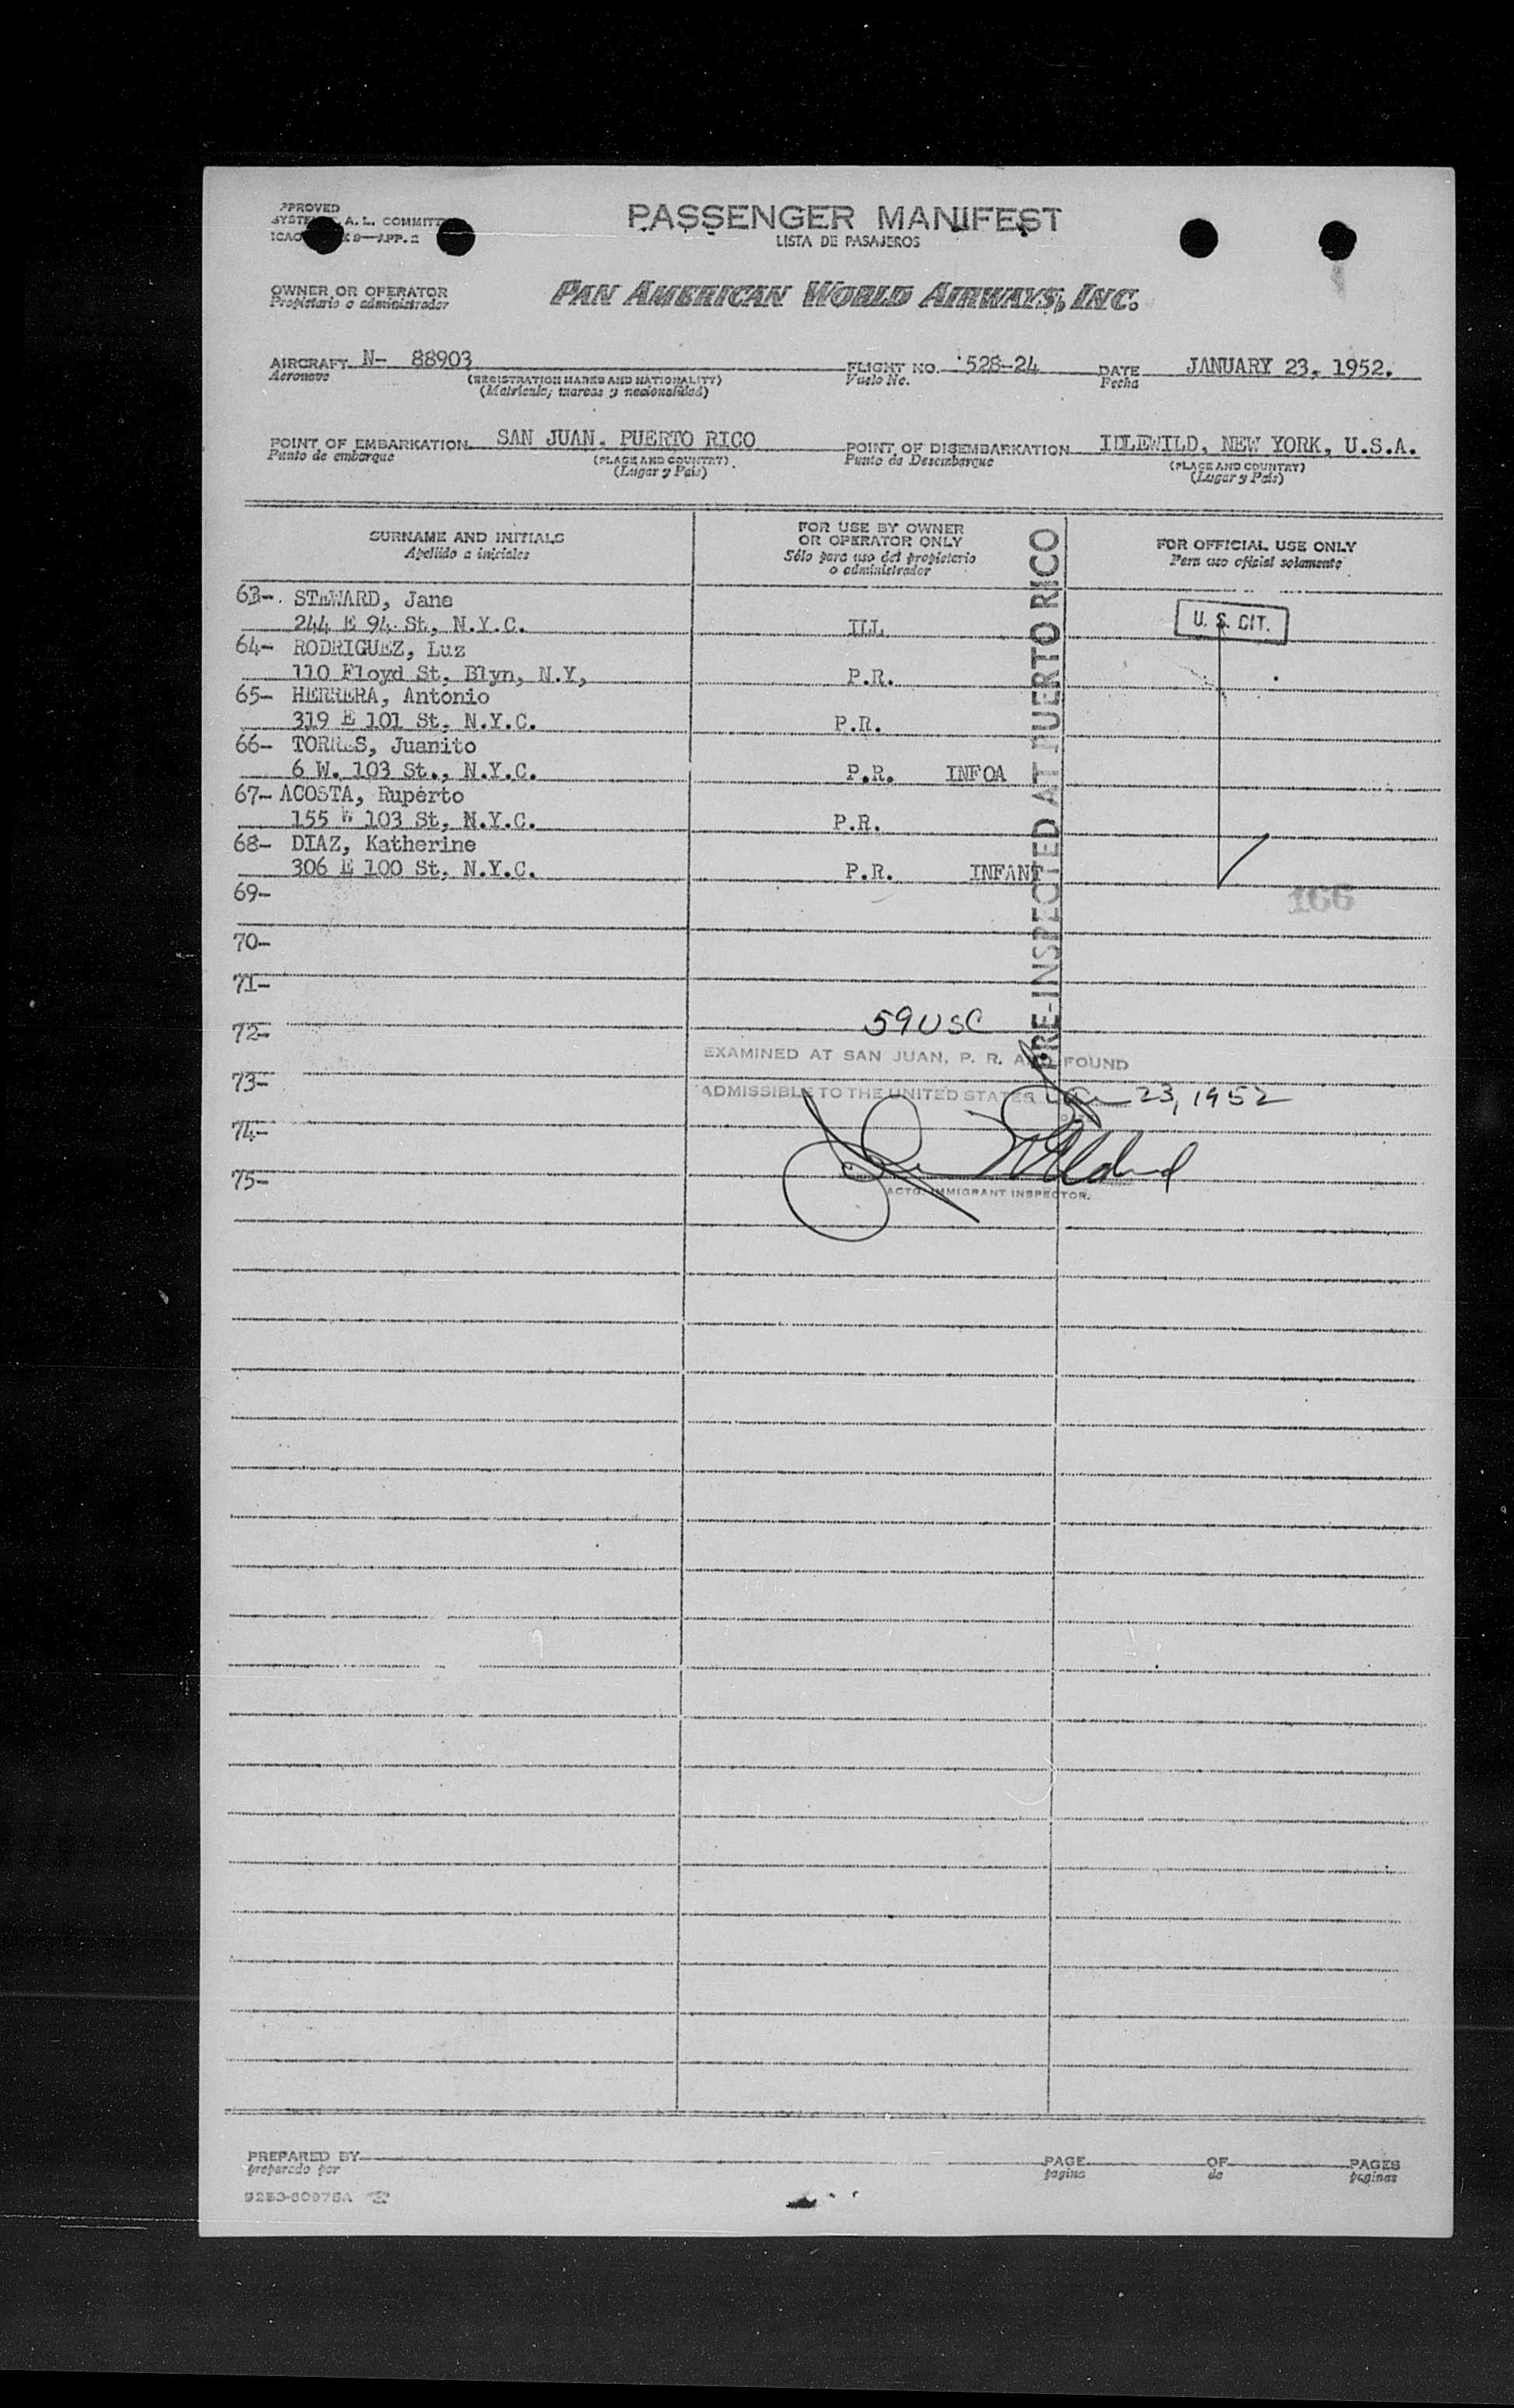 PASSENGER MANIFEST
LISTA DE PASAJEROS
PPROVED
A. L. COMMITT
9—APP. 2
OWNER OR OPERATOR
Propietario o administrador
PAN AMERICAN WORLD AIRWAYS, INC.
AIRCRAFT N- 88903 FLIGHT NO. 528-24 DATE JANUARY 23, 1952.
Aeronave (REGISTRATION MARKS AND NATIONALITY) Vuelo No. Fecha
(Matricula, marcas y nacionalidad)
POINT OF EMBARKATION SAN JUAN, PUERTO RICO POINT OF DISEMBARKATION IDLEWILD, NEW YORK, U.S.A.
Punto de embarque (PLACE AND COUNTRY) Punto de Desembarque (PLACE AND COUNTRY)
(Lugar y Pais) (Lugar y Pais)
SURNAME AND INITIALS FOR USE BY OWNER OR OPERATOR ONLY FOR OFFICIAL USE ONLY
Apellido a iniciales Sólo para uso del propietario o administrador Para uso oficial solamente
PRE-INSPECTED AT PUERTO RICO
63- STEWARD, Jane
244 E 94 St, N.Y.C. ILL U. S. CIT.
64- RODRIGUEZ, Luz
110 Floyd St, Blyn, N.Y, P.R.
65- HERRERA, Antonio
319 E 101 St, N.Y.C. P.R.
66- TORRES, Juanito
6 W. 103 St., N.Y.C. P.R. INFOA
67- ACOSTA, Ruperto
155 W 103 St, N.Y.C. P.R.
68- DIAZ, Katherine
306 E 100 St, N.Y.C. P.R. INFANT
69-
166
70-
71-
72- 59 USC
EXAMINED AT SAN JUAN, P. R. AND FOUND
73-
ADMISSIBLE TO THE UNITED STATES Jan 23, 1952
74-
75-
ACTG. IMMIGRANT INSPECTOR.
PREPARED BY PAGE OF PAGES
preparado por pagina de paginas
9253-60975A